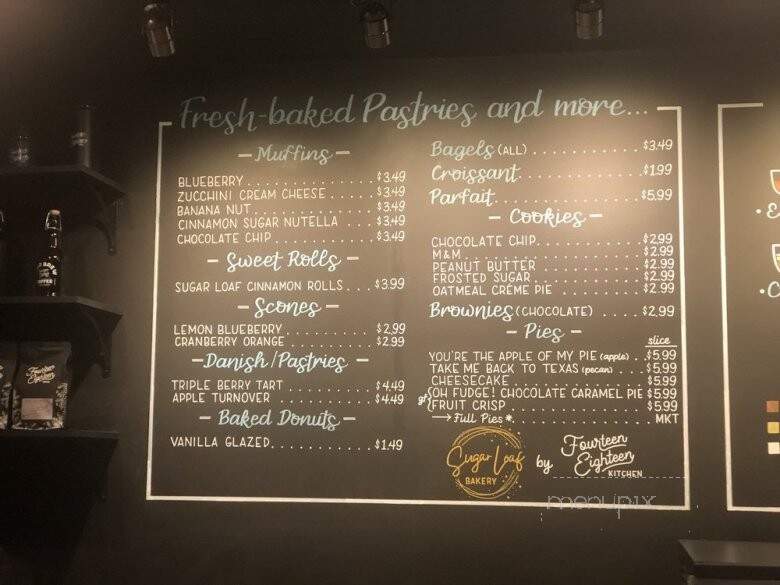 Fresh-baked Pastries and more...
- Muffins -
BLUEBERRY.................$3.49
ZUCCHINI CREAM CHEESE.....$3.49
BANANA NUT................$3.49
CINNAMON SUGAR NUTELLA....$3.49
CHOCOLATE CHIP............$3.49
- Sweet Rolls -
SUGAR LOAF CINNAMON ROLLS...$3.99
- Scones -
LEMON BLUEBERRY...........$2.99
CRANBERRY ORANGE..........$2.99
- Danish/Pastries -
TRIPLE BERRY TART.........$4.49
APPLE TURNOVER............$4.49
- Baked Donuts -
VANILLA GLAZED............$1.49
Bagels (ALL)..............$3.49
Croissant.................$1.99
Parfait...................$5.99
- Cookies -
CHOCOLATE CHIP............$2.99
M&M.......................$2.99
PEANUT BUTTER.............$2.99
FROSTED SUGAR.............$2.99
OATMEAL CRÈME PIE.........$2.99
Brownies (CHOCOLATE)......$2.99
- Pies -
slice
YOU'RE THE APPLE OF MY PIE (apple)..$5.99
TAKE ME BACK TO TEXAS (pecan)...$5.99
CHEESECAKE................$5.99
gf{OH FUDGE! CHOCOLATE CARAMEL PIE $5.99
FRUIT CRISP...............$5.99
→ Full Pies*..............MKT
Sugar Loaf
BAKERY
by
Fourteen
Eighteen
KITCHEN
menupix
Fourteen
Eighteen